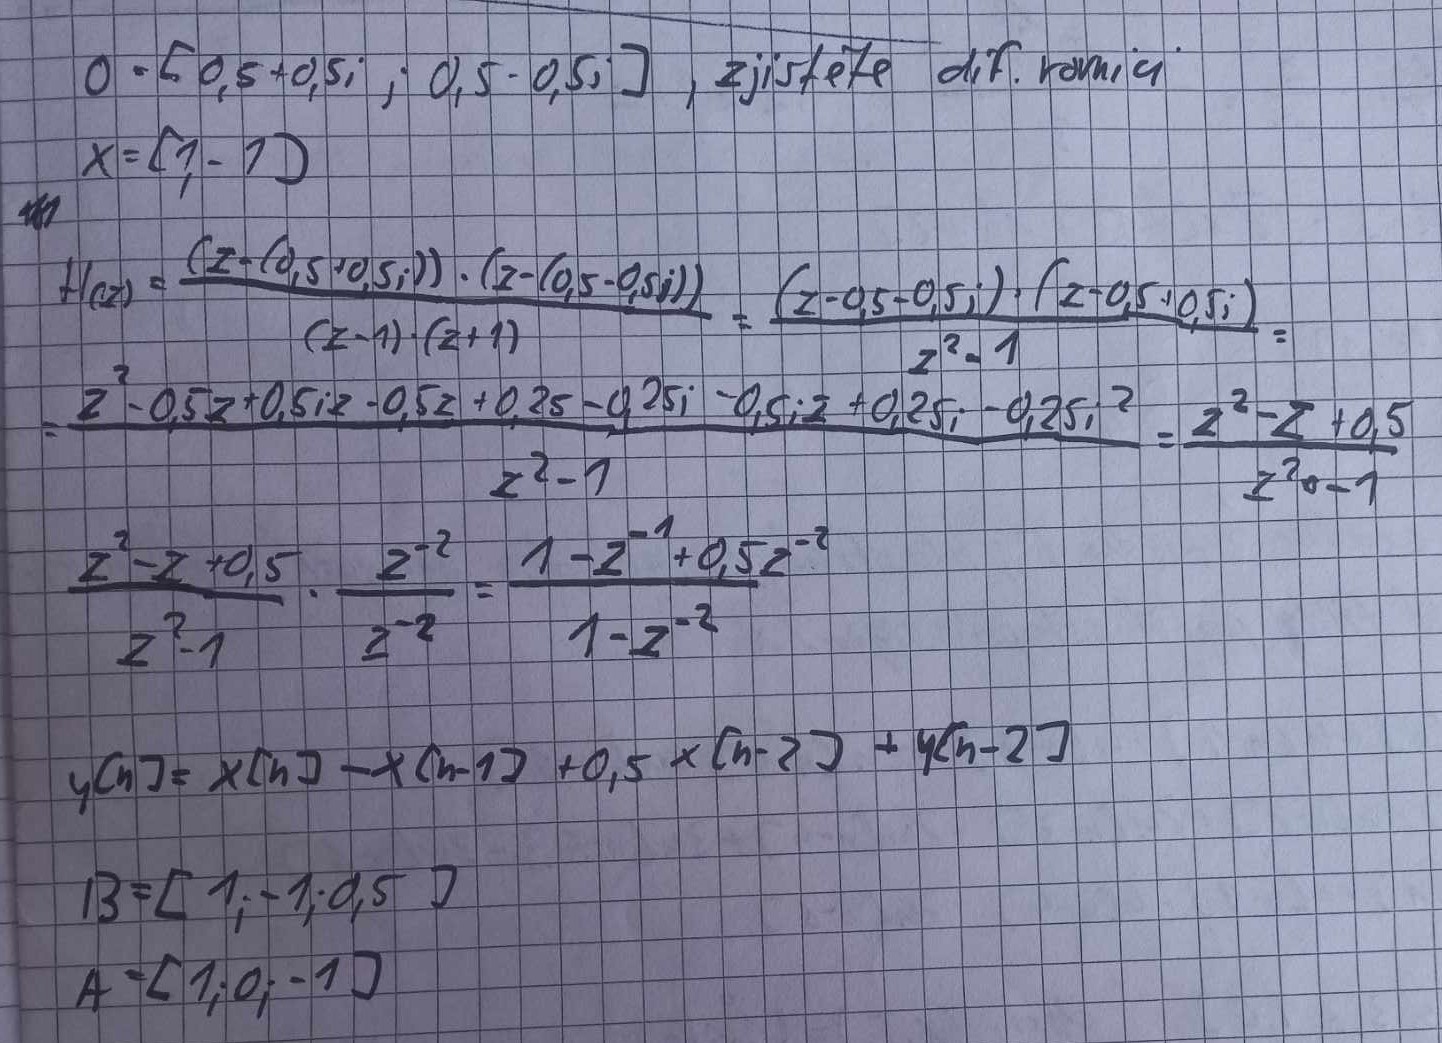 0 = [0,5+0,5i ; 0,5-0,5i] , zjistěte dif. rovnici
x = [1,-1]
H(z) = (z-(0,5+0,5i))·(z-(0,5-0,5i)) / (z-1)·(z+1) = (z-0,5-0,5i)·(z-0,5+0,5i) / z²-1 =
= z²-0,5z+0,5iz-0,5z+0,25-0,25i-0,5iz+0,25i-0,25i² / z²-1 = z²-z+0,5 / z²-1
z²-z+0,5 / z²-1 · z⁻² / z⁻² = 1-z⁻¹+0,5z⁻² / 1-z⁻²
y[n] = x[n] - x[n-1] + 0,5 x[n-2] + y[n-2]
B = [1;-1;0,5]
A = [1;0;-1]